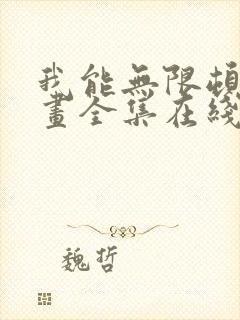 我能無限頓
畫全集在綫
魏哲